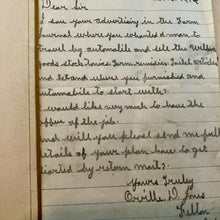 Dear Sir
I saw your advertising in the Farm
Journal where you wanted a man to
travel by automobile and sell the
goods stock tonics. Farm remidies Toilet articles
and Ect. and where you furnished and
automobile to start with.
I would like very much to have the
of the job.
and will you please send me full
details of your plan how to get
started by return mail?
Yours Truley
Orville D. Jones